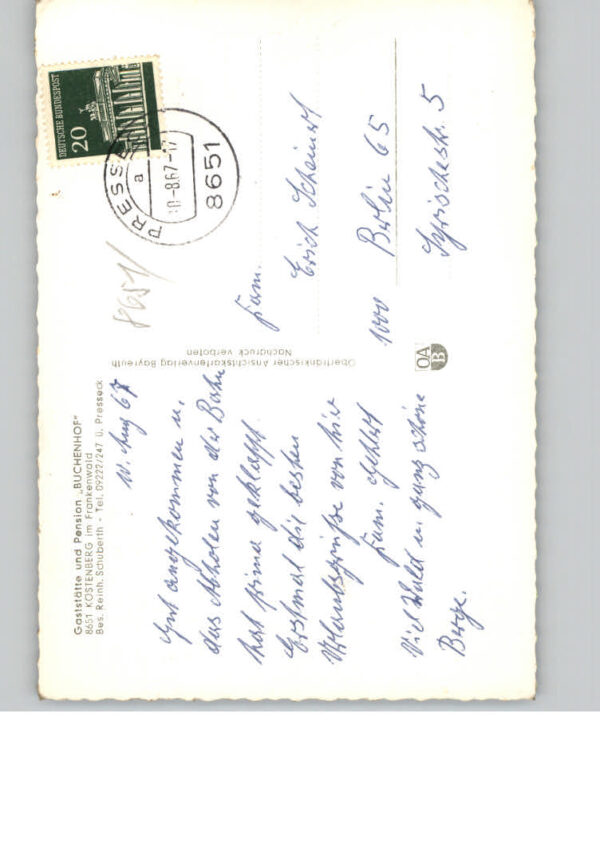 Gaststätte und Pension „BUCHENHOF"
8651 KOSTENBERG im Frankenwald
Bes. Reinh. Schuberth - Tel. 09222/247 ü. Presseck
10. Aug 67
Gut angekommen u.
das Abholen von der Bahn
hat prima geklappt.
Erstmal die besten
Urlaubsgrüße von hier
Fam.
Viel Wald u. ganz schöne
Berge.
Oberfränkischer Ansichtskartenverlag Bayreuth
Nachdruck verboten
DEUTSCHE BUNDESPOST
20
PRESSECK
a
10.-8.67-17
8651
8651
Fam.
Erich
1000 Berlin 65
Syrischestr. 5
OA
B